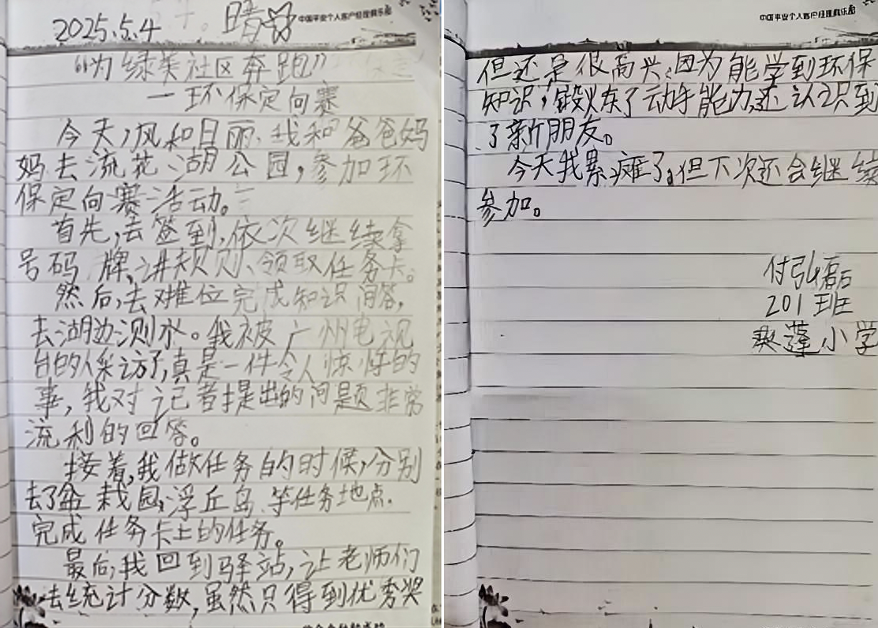 2025.5.4 晴
中国平安个人客户经理俱乐部
“为绿美社区奔跑”
—环保定向赛
今天,风和日丽,我和爸爸妈
妈去流花湖公园,参加环
保定向赛活动。
首先,去签到,依次继续拿
号码牌,讲规则、领取任务卡。
然后,去摊位完成知识问答,
去湖边测水。我被广州电视
台的人采访了,真是一件令人惊讶的
事,我对记者提出的问题非常
流利的回答。
接着,我做任务的时候,分别
去了盆栽园,浮丘岛等任务地点.
完成任务卡上的任务。
最后,我回到驿站,让老师们
去统计分数,虽然只得到优秀奖
中国平安个人客户经理俱乐部
但还是很高兴,因为能学到环保
知识,锻炼了动手能力,还认识到
了新朋友。
今天我累瘫了,但下次还会继续
参加。
付弘磊
201班
小学